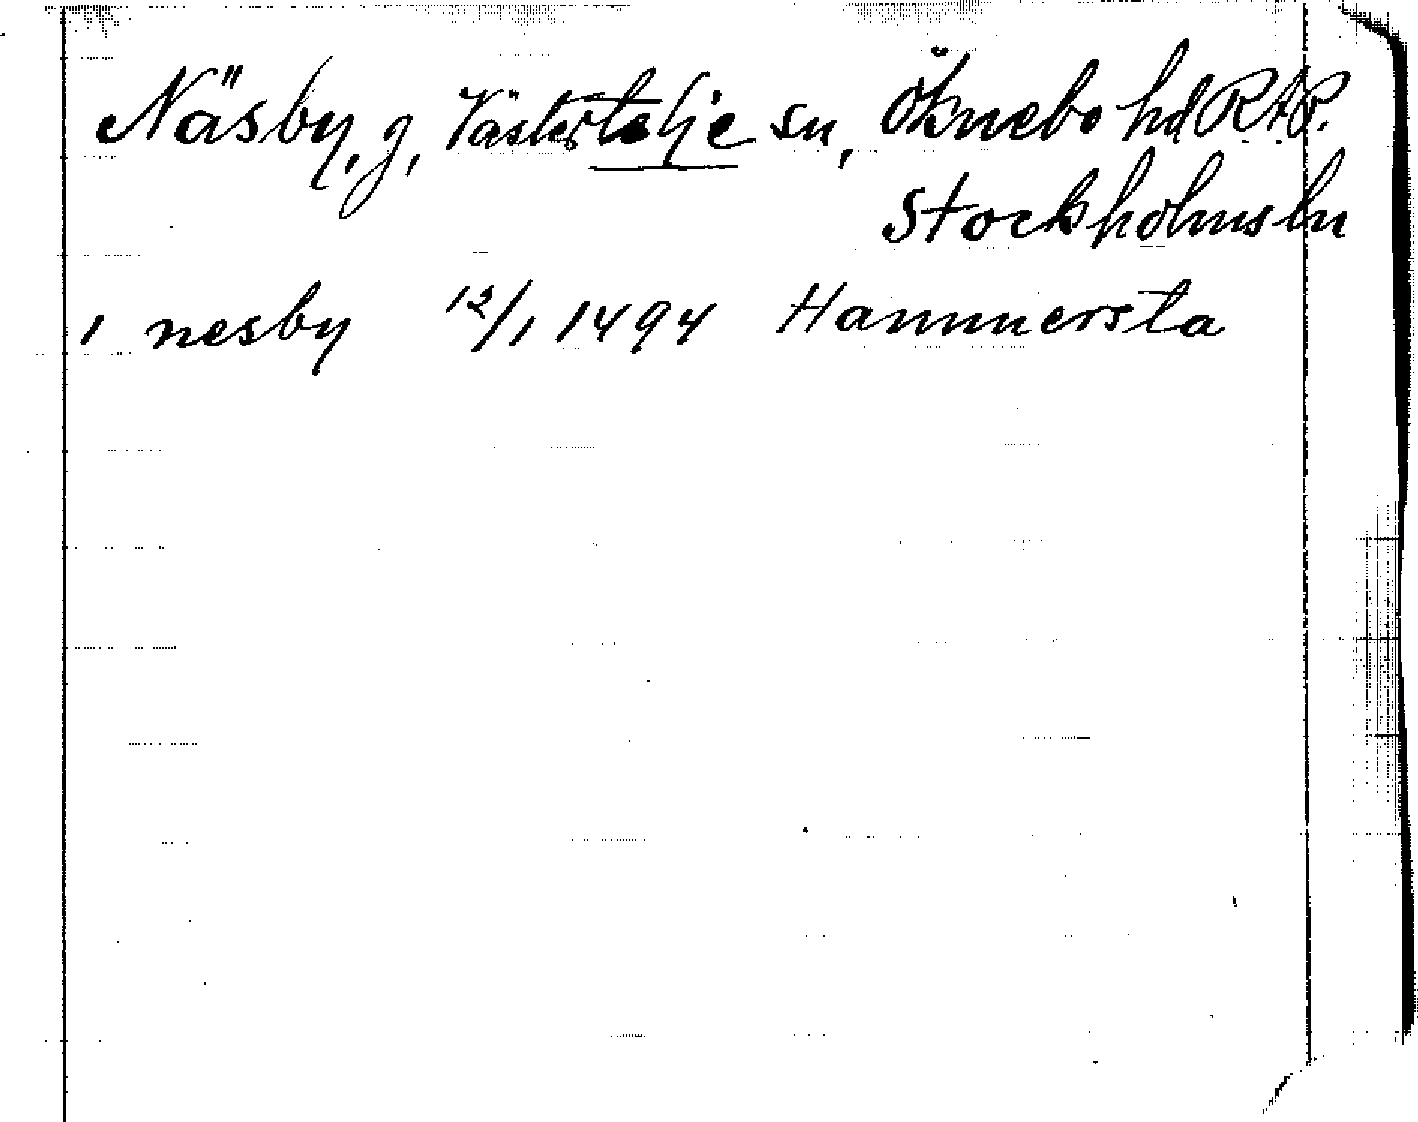 Näsby, g, Västertelje sn, Öknebo hd RAP.
Stockholms ln
1 nesby 12/1 1494 Hammersta